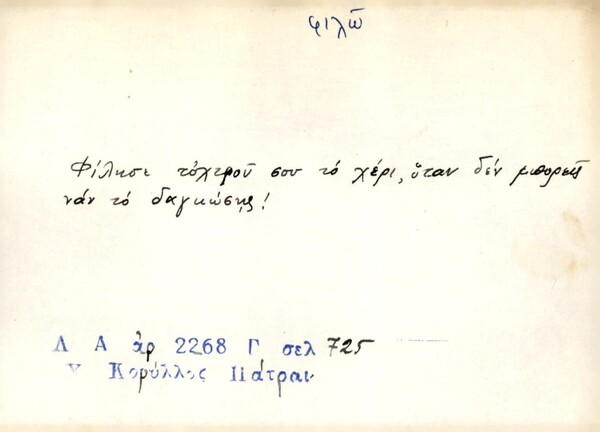 φιλῶ
Φίλησε τὀχτροῦ σου τό χέρι, ὅταν δέν μπορεῖς
νάν τό δαγκώσῃς!
Λ Α ἀρ 2268 Γ σελ 725
Χ Κορύλλος Πάτραι